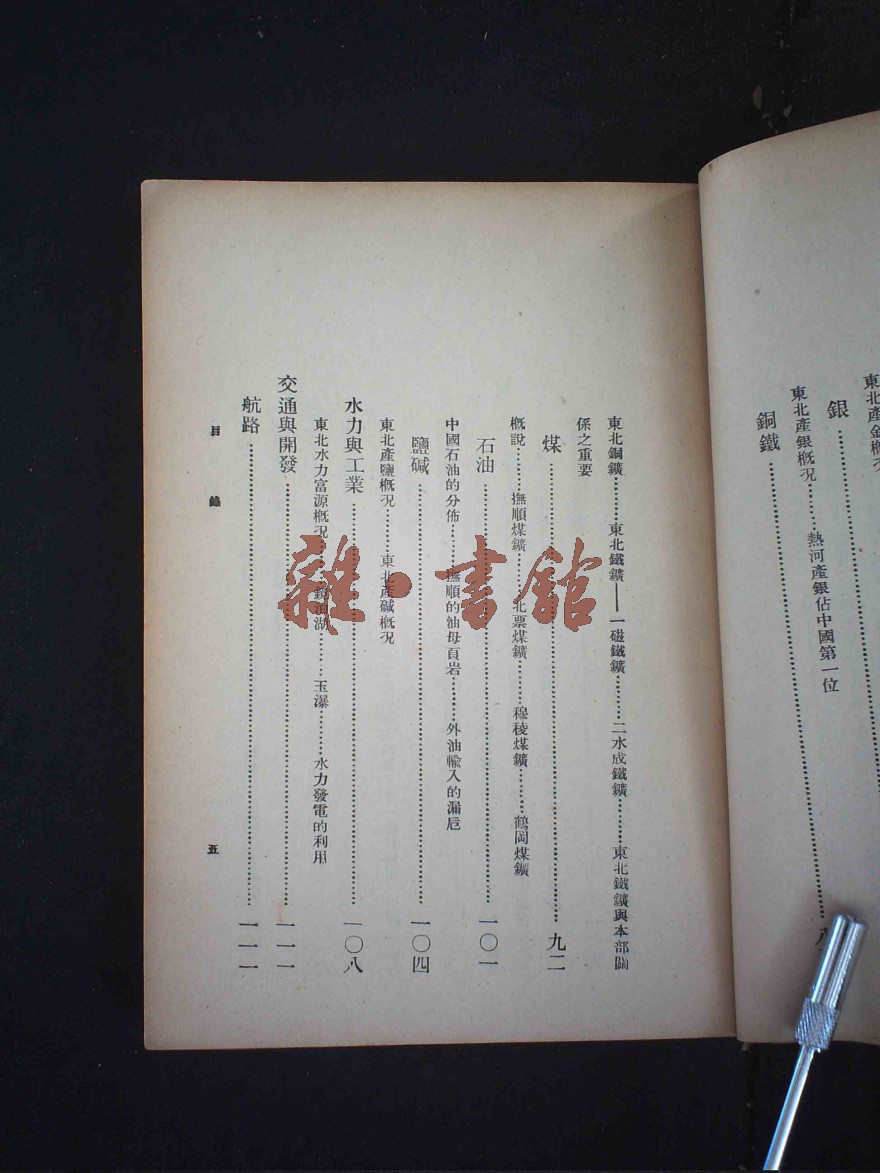 銀
東北產銀概況……熱河產銀佔中國第一位
銅鐵
東北銅鑛……東北鐵鑛——一磁鐵鑛……二水成鐵鑛……東北鐵鑛與本部關
係之重要
煤……九二
概說……撫順煤鑛……北票煤鑛……穆稜煤鑛……鶴岡煤鑛
石油……一〇一
中國石油的分佈……撫順的油母頁岩……外油輸入的漏卮
鹽碱……一〇四
東北產鹽概況……東北產碱概況
水力與工業……一〇八
東北水力富源概況……湖……玉瀑……水力發電的利用
交通與開發……一一一
航路……一一一
目錄
五
雜·書館